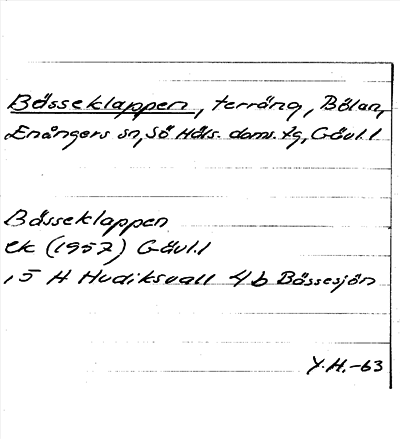 Bösseklappen, terräng, Bölan,
Enångers sn, Sö Häls. doms. tg, Gävl.l
Bösseklappen
ek (1957) Gävl.l
15 H Hudiksvall 4b Bössesjön
Y.H.-63